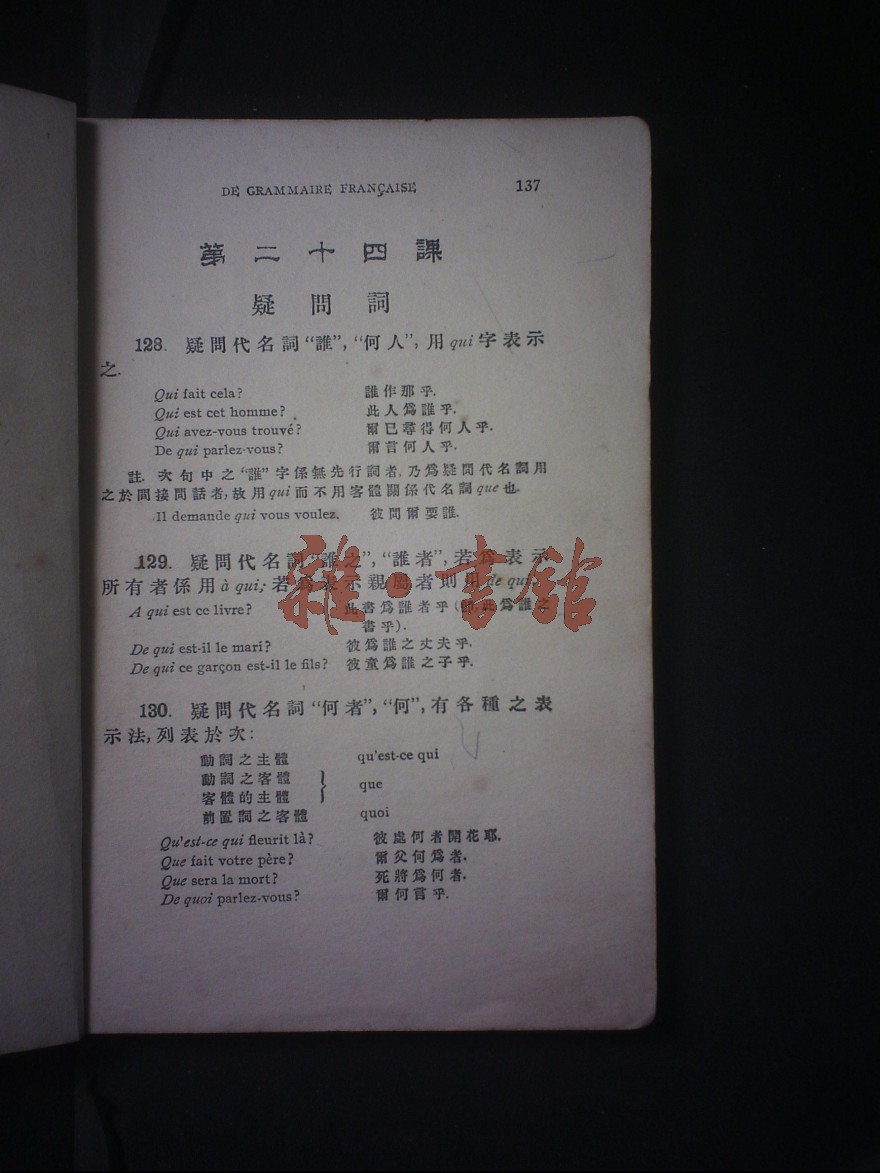 DE GRAMMAIRE FRANÇAISE 137
第二十四課
疑問詞
128. 疑問代名詞“誰”,“何人”,用 qui 字表示
之.
Qui fait cela? 誰作那乎.
Qui est cet homme? 此人爲誰乎.
Qui avez-vous trouvé? 爾已尋得何人乎.
De qui parlez-vous? 爾言何人乎.
註. 次句中之“誰”字係無先行詞者,乃爲疑問代名詞用
之於間接問話者,故用 qui 而不用客體關係代名詞 que 也.
Il demande qui vous voulez. 彼問爾要誰.
129. 疑問代名詞“誰之”,“誰者”,若爲表示
所有者係用 à qui; 若爲表示親屬者則用 de qui.
A qui est ce livre? 此書爲誰者乎(卽,此爲誰之
書乎).
De qui est-il le mari? 彼爲誰之丈夫乎.
De qui ce garçon est-il le fils? 彼童爲誰之子乎.
130. 疑問代名詞“何者”,“何”,有各種之表
示法,列表於次:
動詞之主體 qu'est-ce qui
動詞之客體
客體的主體 } que
前置詞之客體 quoi
Qu'est-ce qui fleurit là? 彼處何者開花耶.
Que fait votre père? 爾父何爲者.
Que sera la mort? 死將爲何者.
De quoi parlez-vous? 爾何言乎.
雜·書館